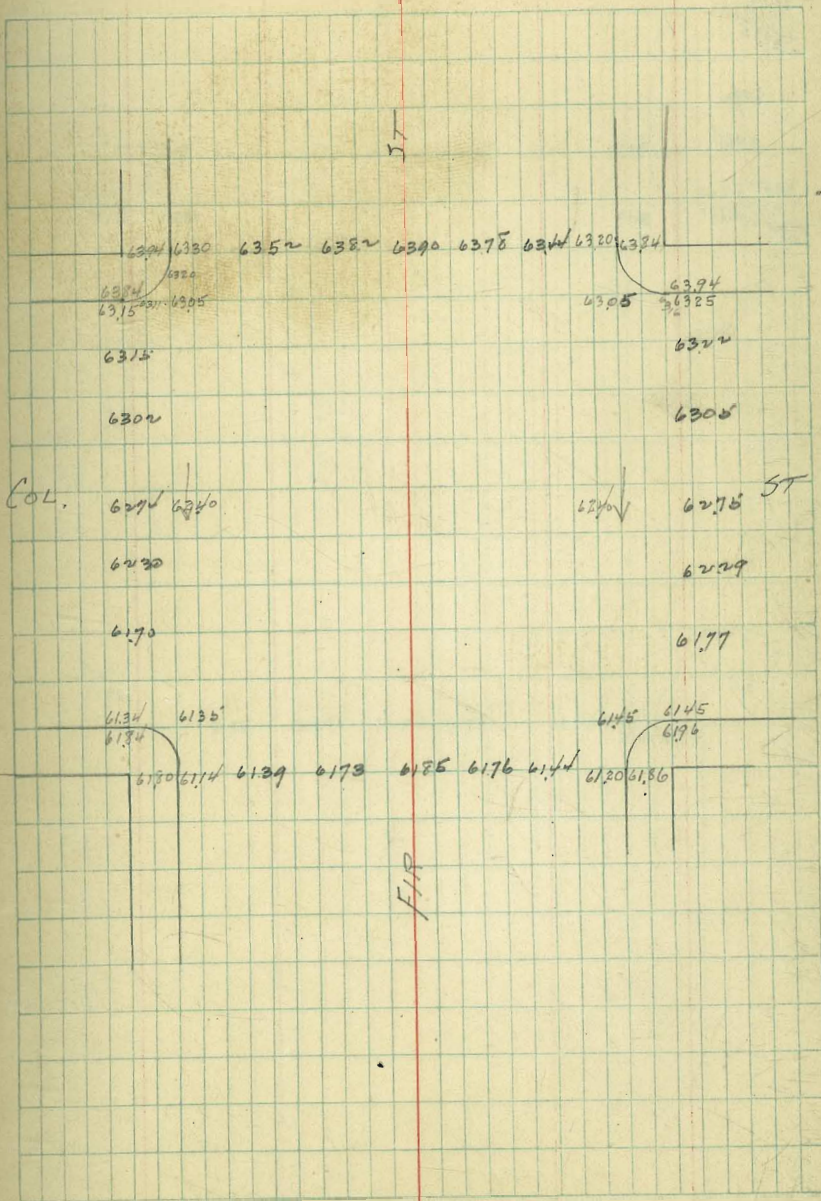 ST
6394 6330 6352 6382 6390 6378 6344 6320 6384
6320
6384 6394
6315 6311 6305 6305 6316 6325
6315 6322
6302 6305
COL. 6274 6240 6240 6275 ST
6230 6229
6170 6177
6134 6135 6145 6145
6184 6196
6180 6114 6139 6173 6185 6176 6144 6120 6186
FIR